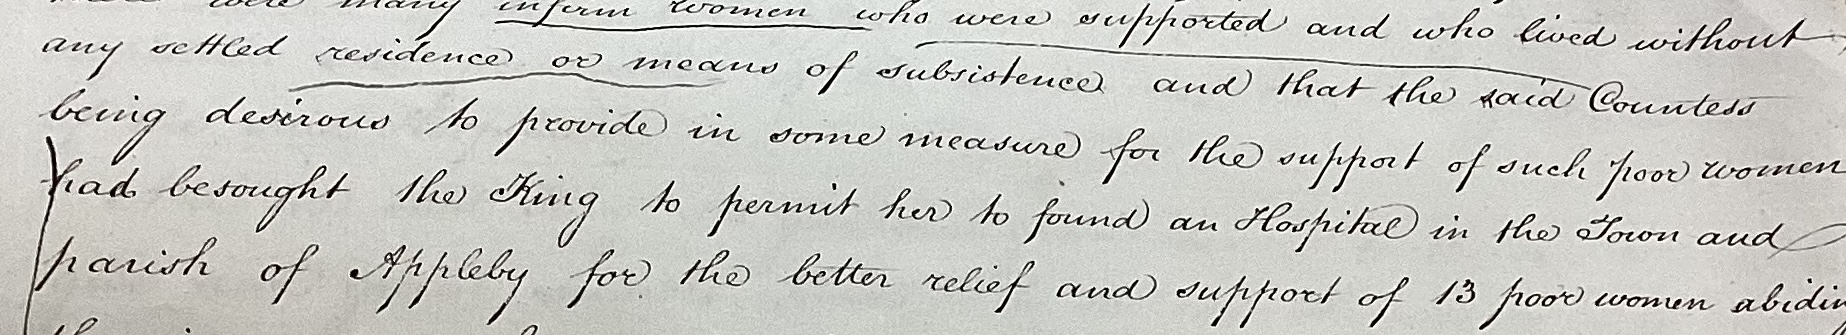 were many infirm women who were supported and who lived without
any settled residence or means of subsistence and that the said Countess
being desirous to provide in some measure for the support of such poor women
had besought the King to permit her to found an Hospital in the Town and
parish of Appleby for the better relief and support of 13 poor women abidin